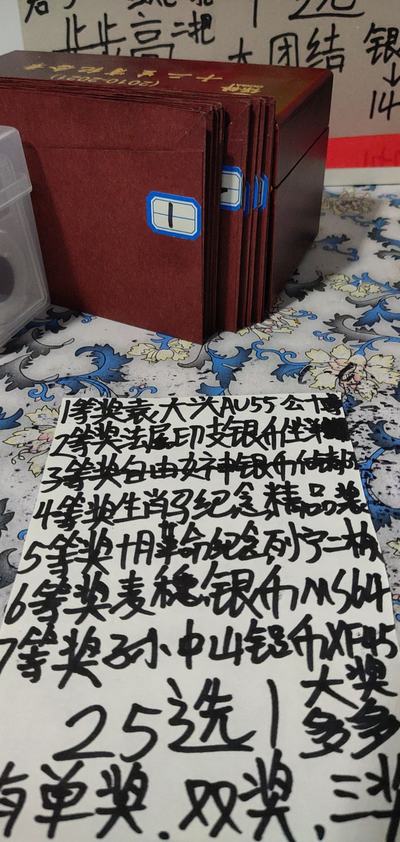 步步高二把
大团结
银
14
十二生肖纪念章
(2010-2021)
1
1等奖袁大头AU55公博
2等奖法属印支银币坐洋
3等奖自由女神银币
4等奖生肖马纪念精品奖
5等奖十月革命纪念列宁二枚
6等奖麦穗银币MS64
7等奖孙中山铝币XF45
25选1
大奖
多多
有单奖.双奖.三奖